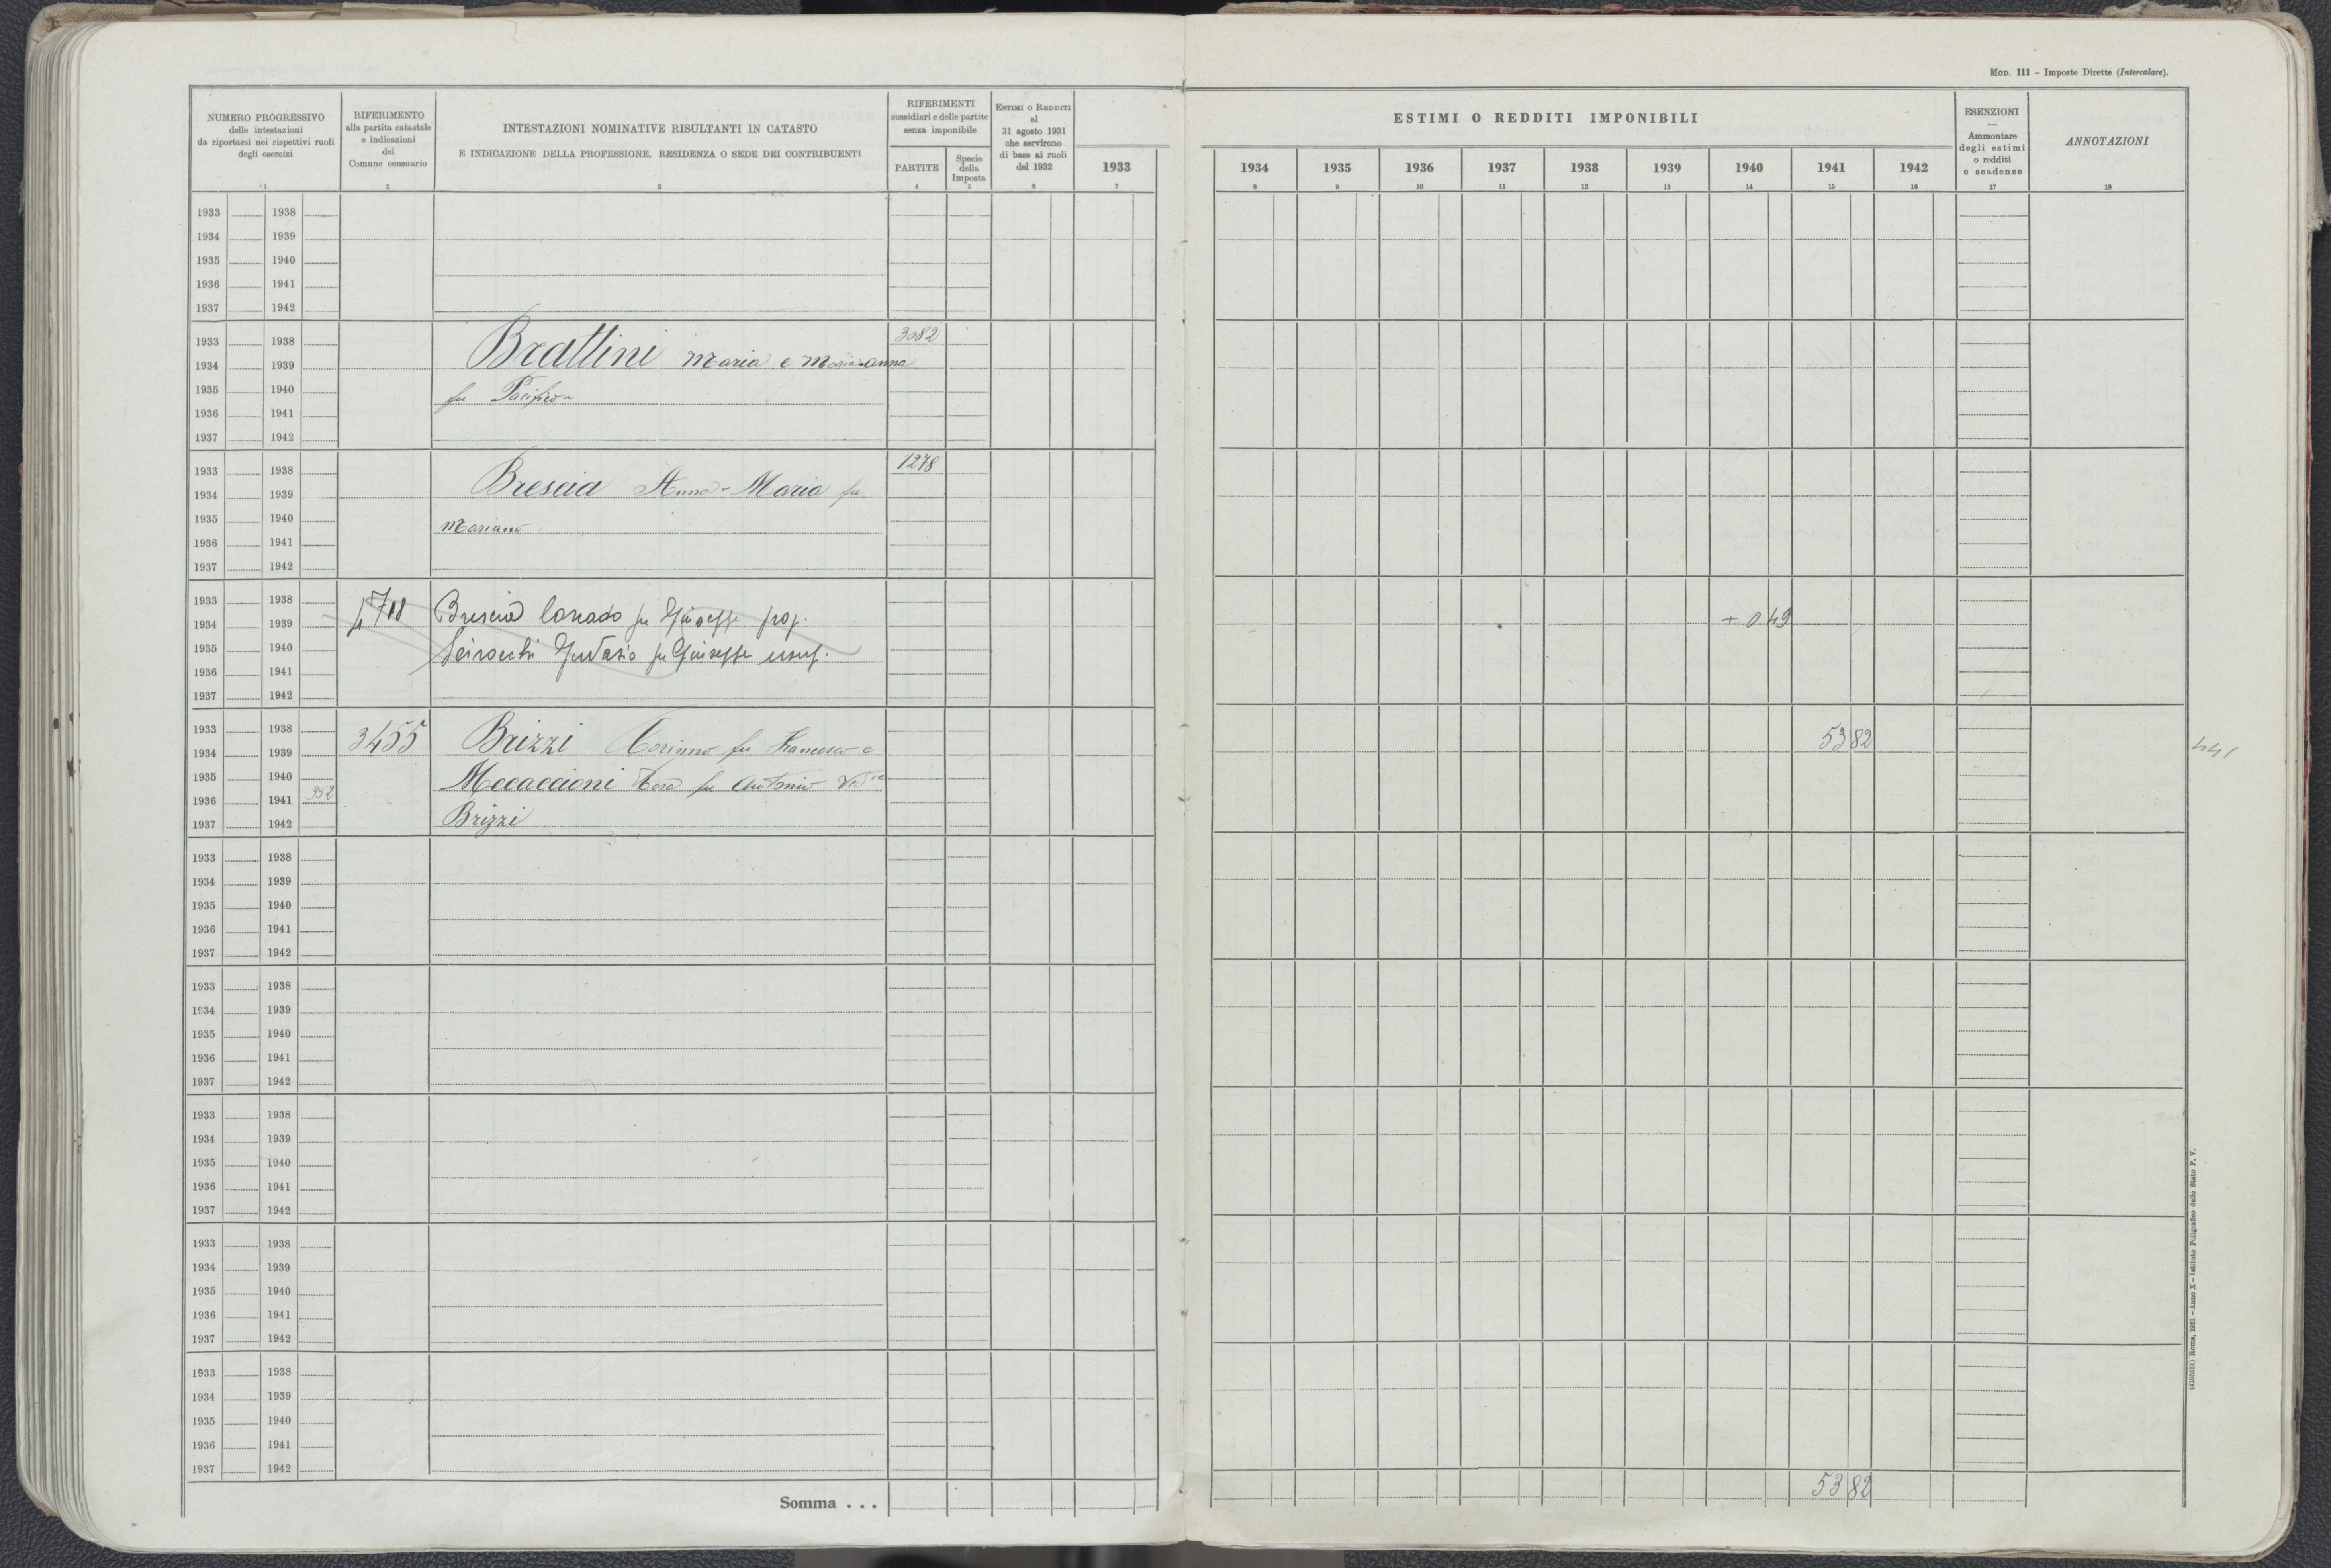 MOD. 111 – Imposte Dirette (Intercalare).
NUMERO PROGRESSIVO
delle intestazioni
da riportarsi nei rispettivi ruoli
degli esercizi
1
RIFERIMENTO
alla partita catastale
e indicazioni
del
Comune censuario
2
INTESTAZIONI NOMINATIVE RISULTANTI IN CATASTO
E INDICAZIONE DELLA PROFESSIONE, RESIDENZA O SEDE DEI CONTRIBUENTI
3
RIFERIMENTI
sussidiari e delle partite
senza imponibile
PARTITE
4
Specie
della
Imposta
5
ESTIMI O REDDITI
al
31 agosto 1931
che servirono
di base ai ruoli
del 1932
6
1933
7
ESTIMI O REDDITI IMPONIBILI
1934 1935 1936 1937 1938 1939 1940 1941 1942
8 9 10 11 12 13 14 15 16
ESENZIONI
—
Ammontare
degli estimi
o redditi
e scadenze
17
ANNOTAZIONI
18
1933 1938
1934 1939
1935 1940
1936 1941
1937 1942
1933 1938 3082
1934 1939 Brattini Maria e Maria-anna
1935 1940 fu Pacifico
1936 1941
1937 1942
1933 1938 1278
1934 1939 Brescia Anna-Maria fu
1935 1940 Mariano
1936 1941
1937 1942
1933 1938
1934 1939 Brescia Corrado fu Giuseppe prop. + 0 49
1935 1940 fu Giuseppe usuf.
1936 1941
1937 1942
1933 1938 3455 Brizzi fu Francesco e 53 82
1934 1939 441
1935 1940 Meccaccioni fu Antonio Ved
1936 1941 352
1937 1942 Brizzi
1933 1938
1934 1939
1935 1940
1936 1941
1937 1942
1933 1938
1934 1939
1935 1940
1936 1941
1937 1942
1933 1938
1934 1939
1935 1940
1936 1941
1937 1942
1933 1938
1934 1939
1935 1940
1936 1941
1937 1942
1933 1938
1934 1939
1935 1940
1936 1941
1937 1942
Somma . . . 53 82
(4103551) Roma, 1931 – Anno X – Istituto Poligrafico dello Stato P. V.